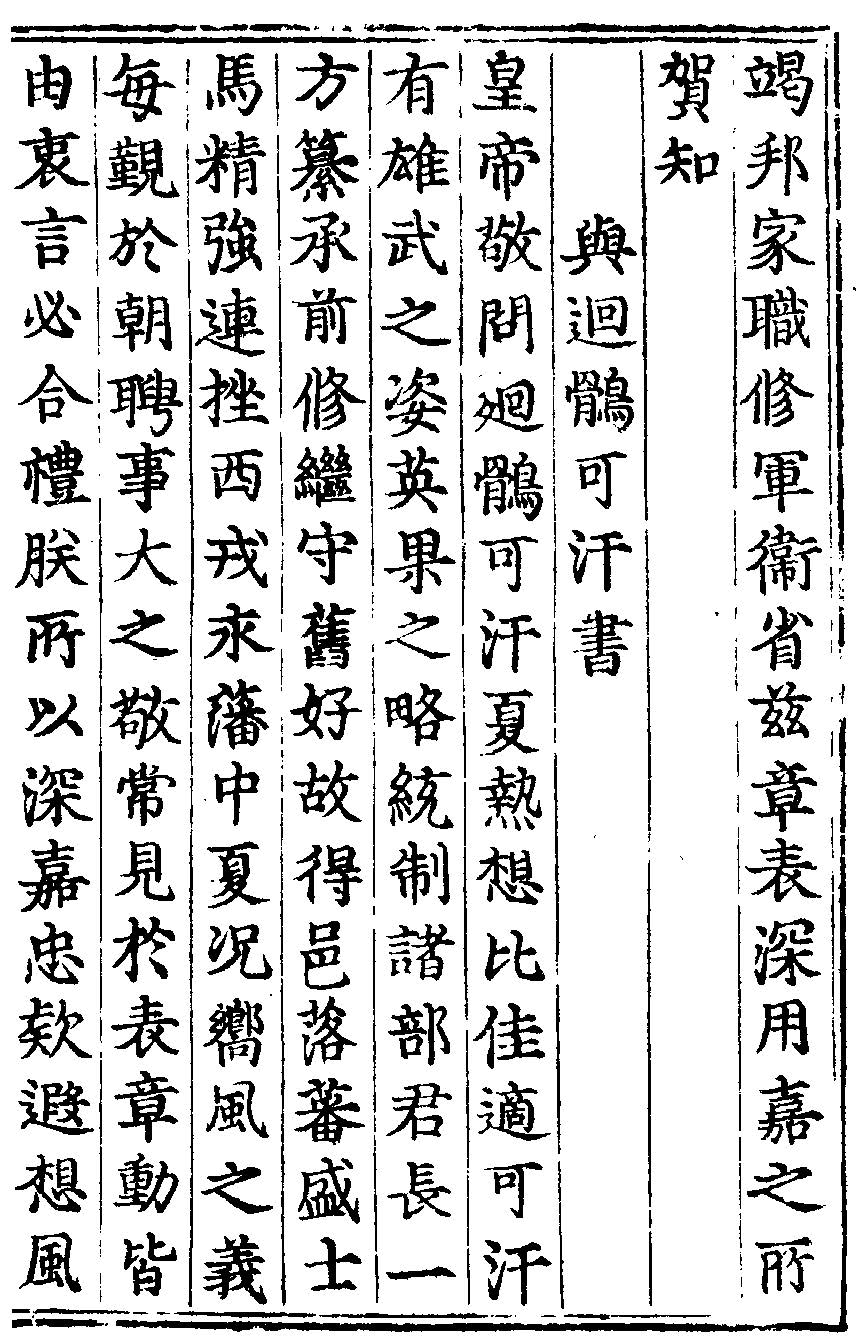 竭邦家職修軍衛省兹章表深用嘉之所
賀知
與迴鶻可汗書
皇帝敬問迴鶻可汗夏熱想比佳適可汗
有雄武之姿英果之略統制諸部君長一
方纂承前修繼守舊好故得邑落蕃盛士
馬精強連挫西戎永藩中夏况嚮風之義
每覩於朝聘事大之敬常見於表章動皆
由衷言必合禮朕所以深嘉忠欵遐想風